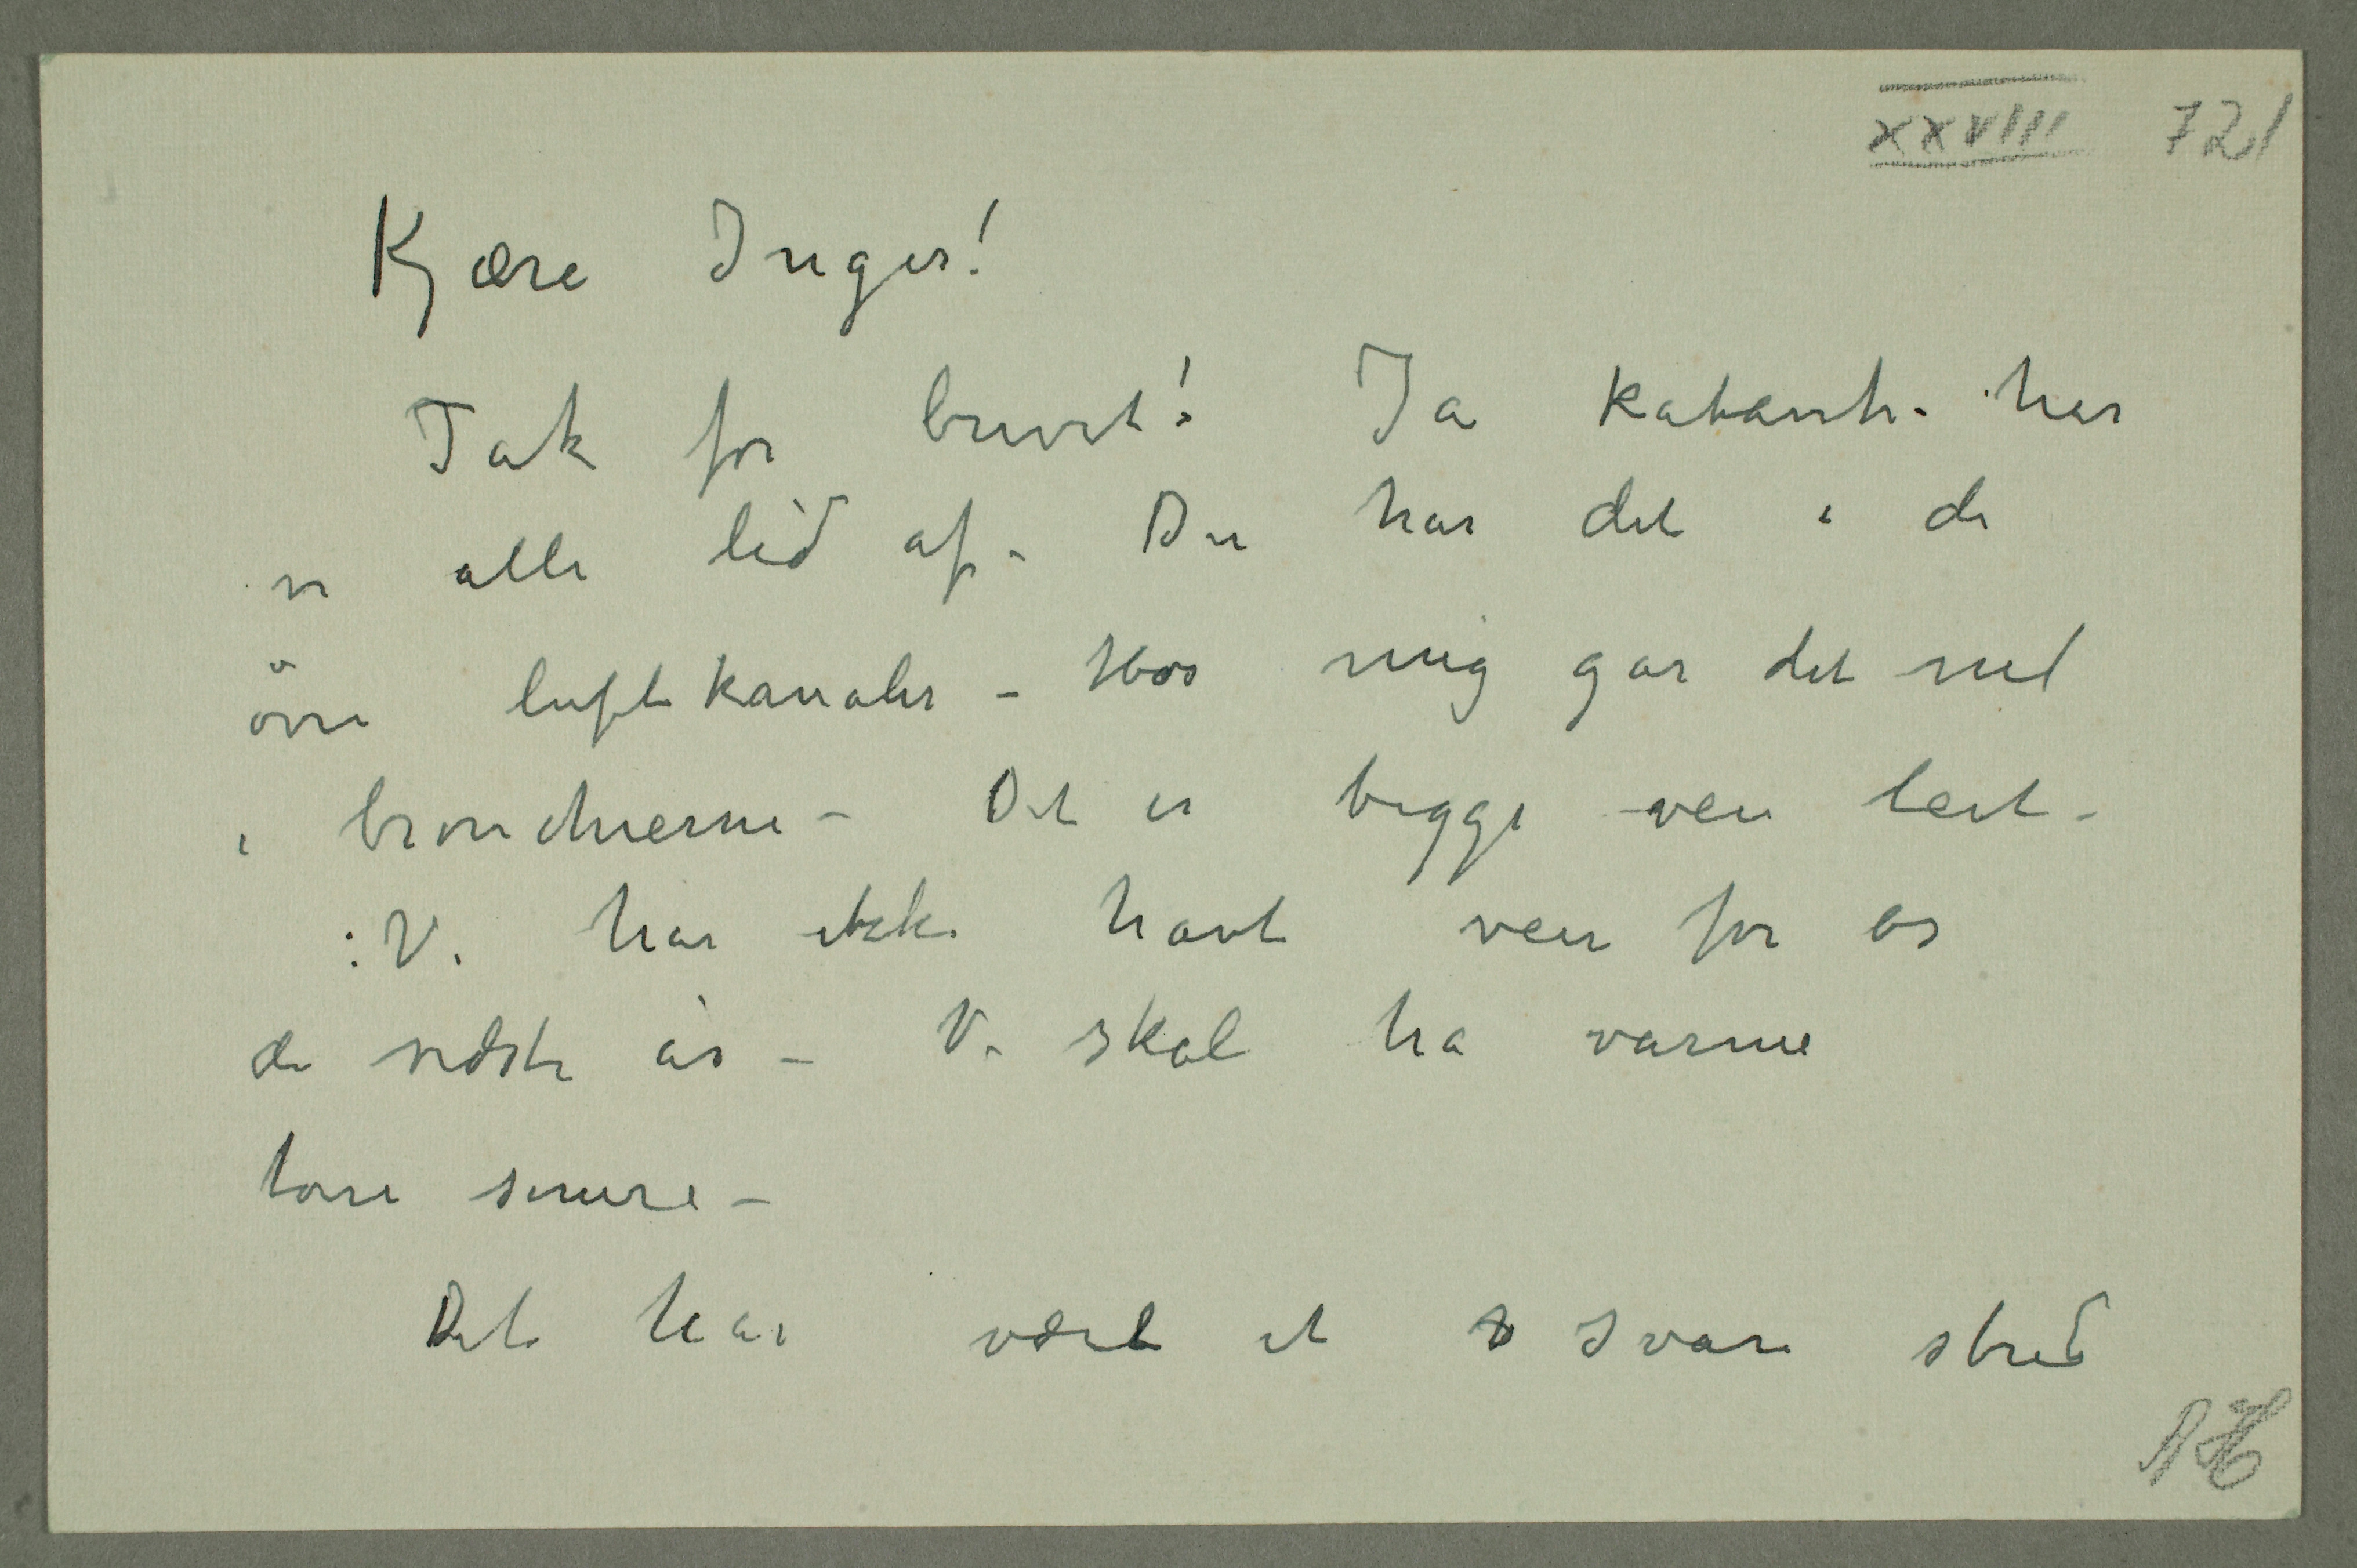 XXVIII 721
Kjære Inger!
Tak for brevet! Ja katarrh har
vi alle lid af – Du har det i de
övre luftkanaler – Hos mig gar det ned
i bronchierne – Det er begge veie leit –
: Vi har ikke havt veir for os
de sidste år – Vi skal ha varme
torre somre –
Det har været et svare stred